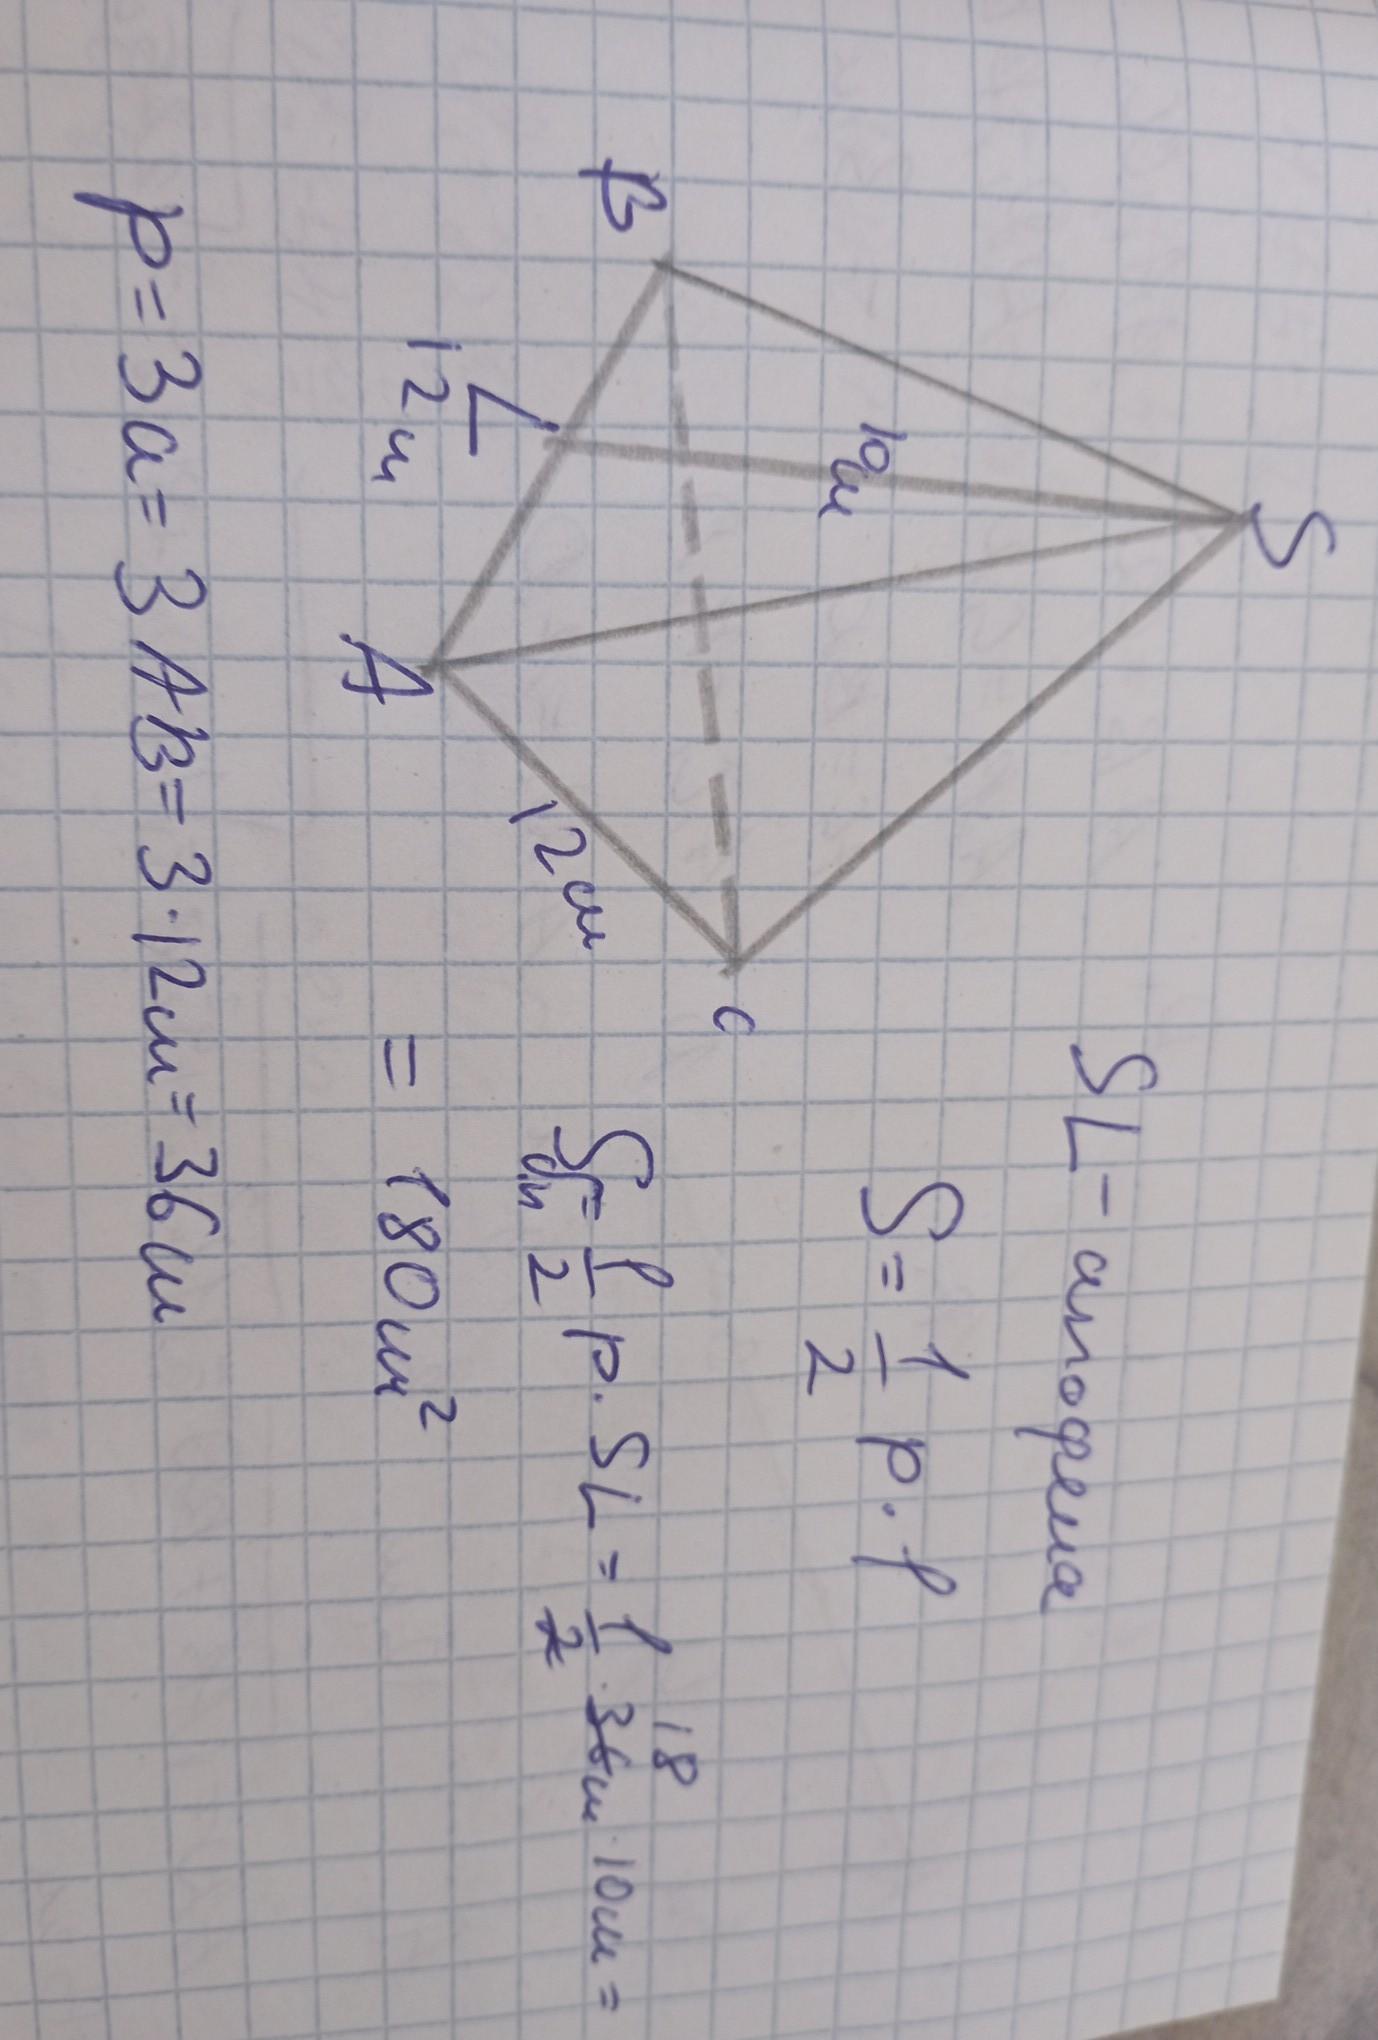 S
B
10см
L
12см
A
12см
C
SL - апофема
S = 1/2 p · f
Sбп = 1/2 p · SL = 1/2 · 36см · 10см = 18
= 180см²
p = 3a = 3 AB = 3 · 12см = 36см